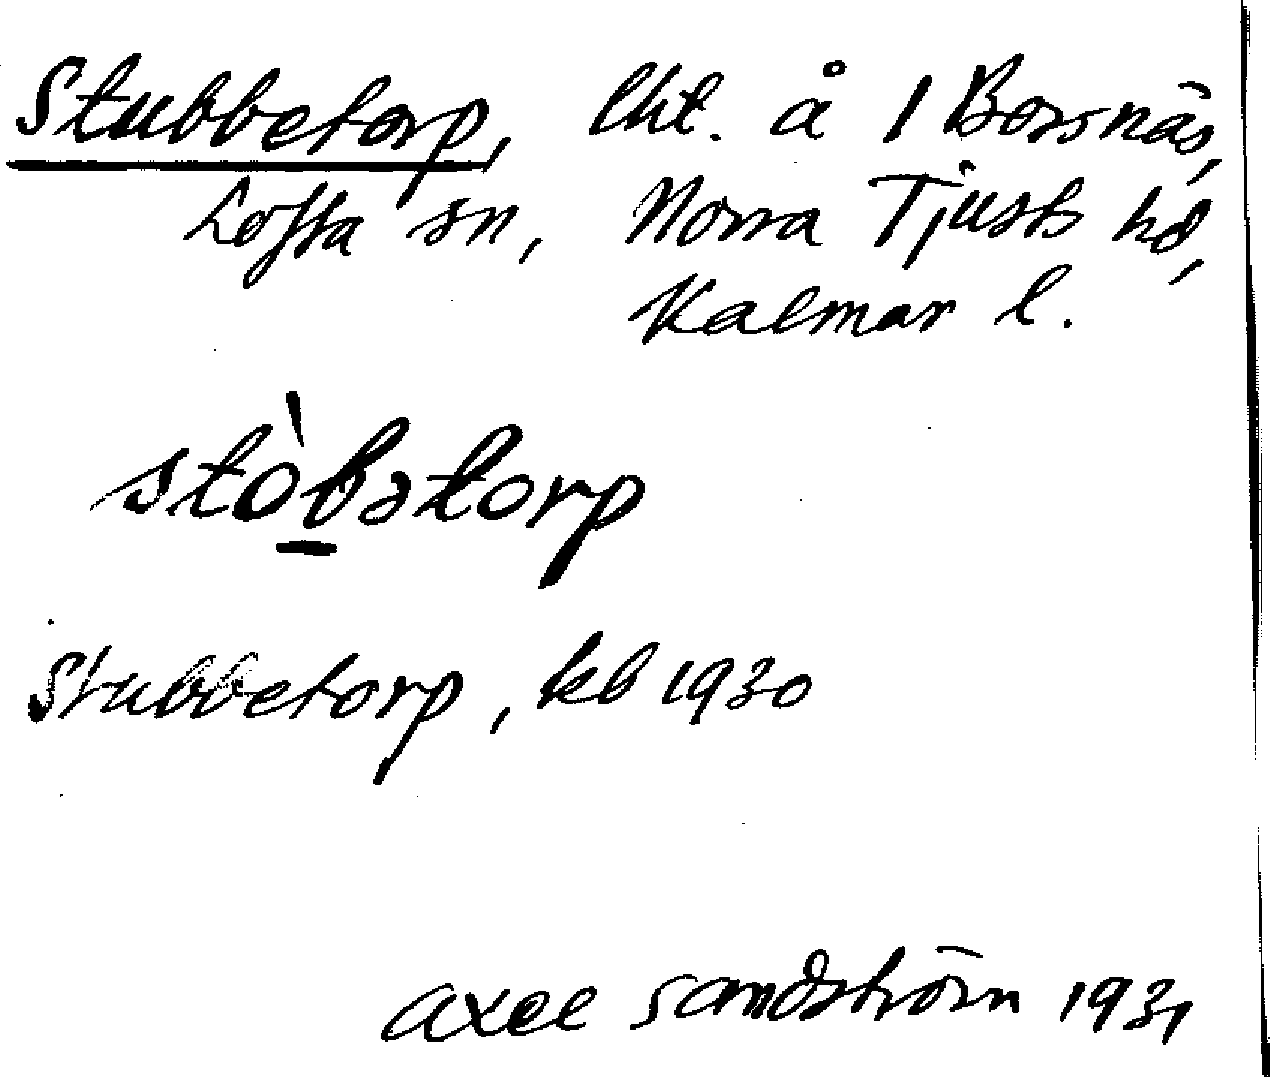 Stubbetorp, lht. å 1 Borsnäs,
Lofta sn, Norra Tjusts hd,
Kalmar l.
stòbətorp
Stubbetorp, kb 1930
Axel Sandström 1931